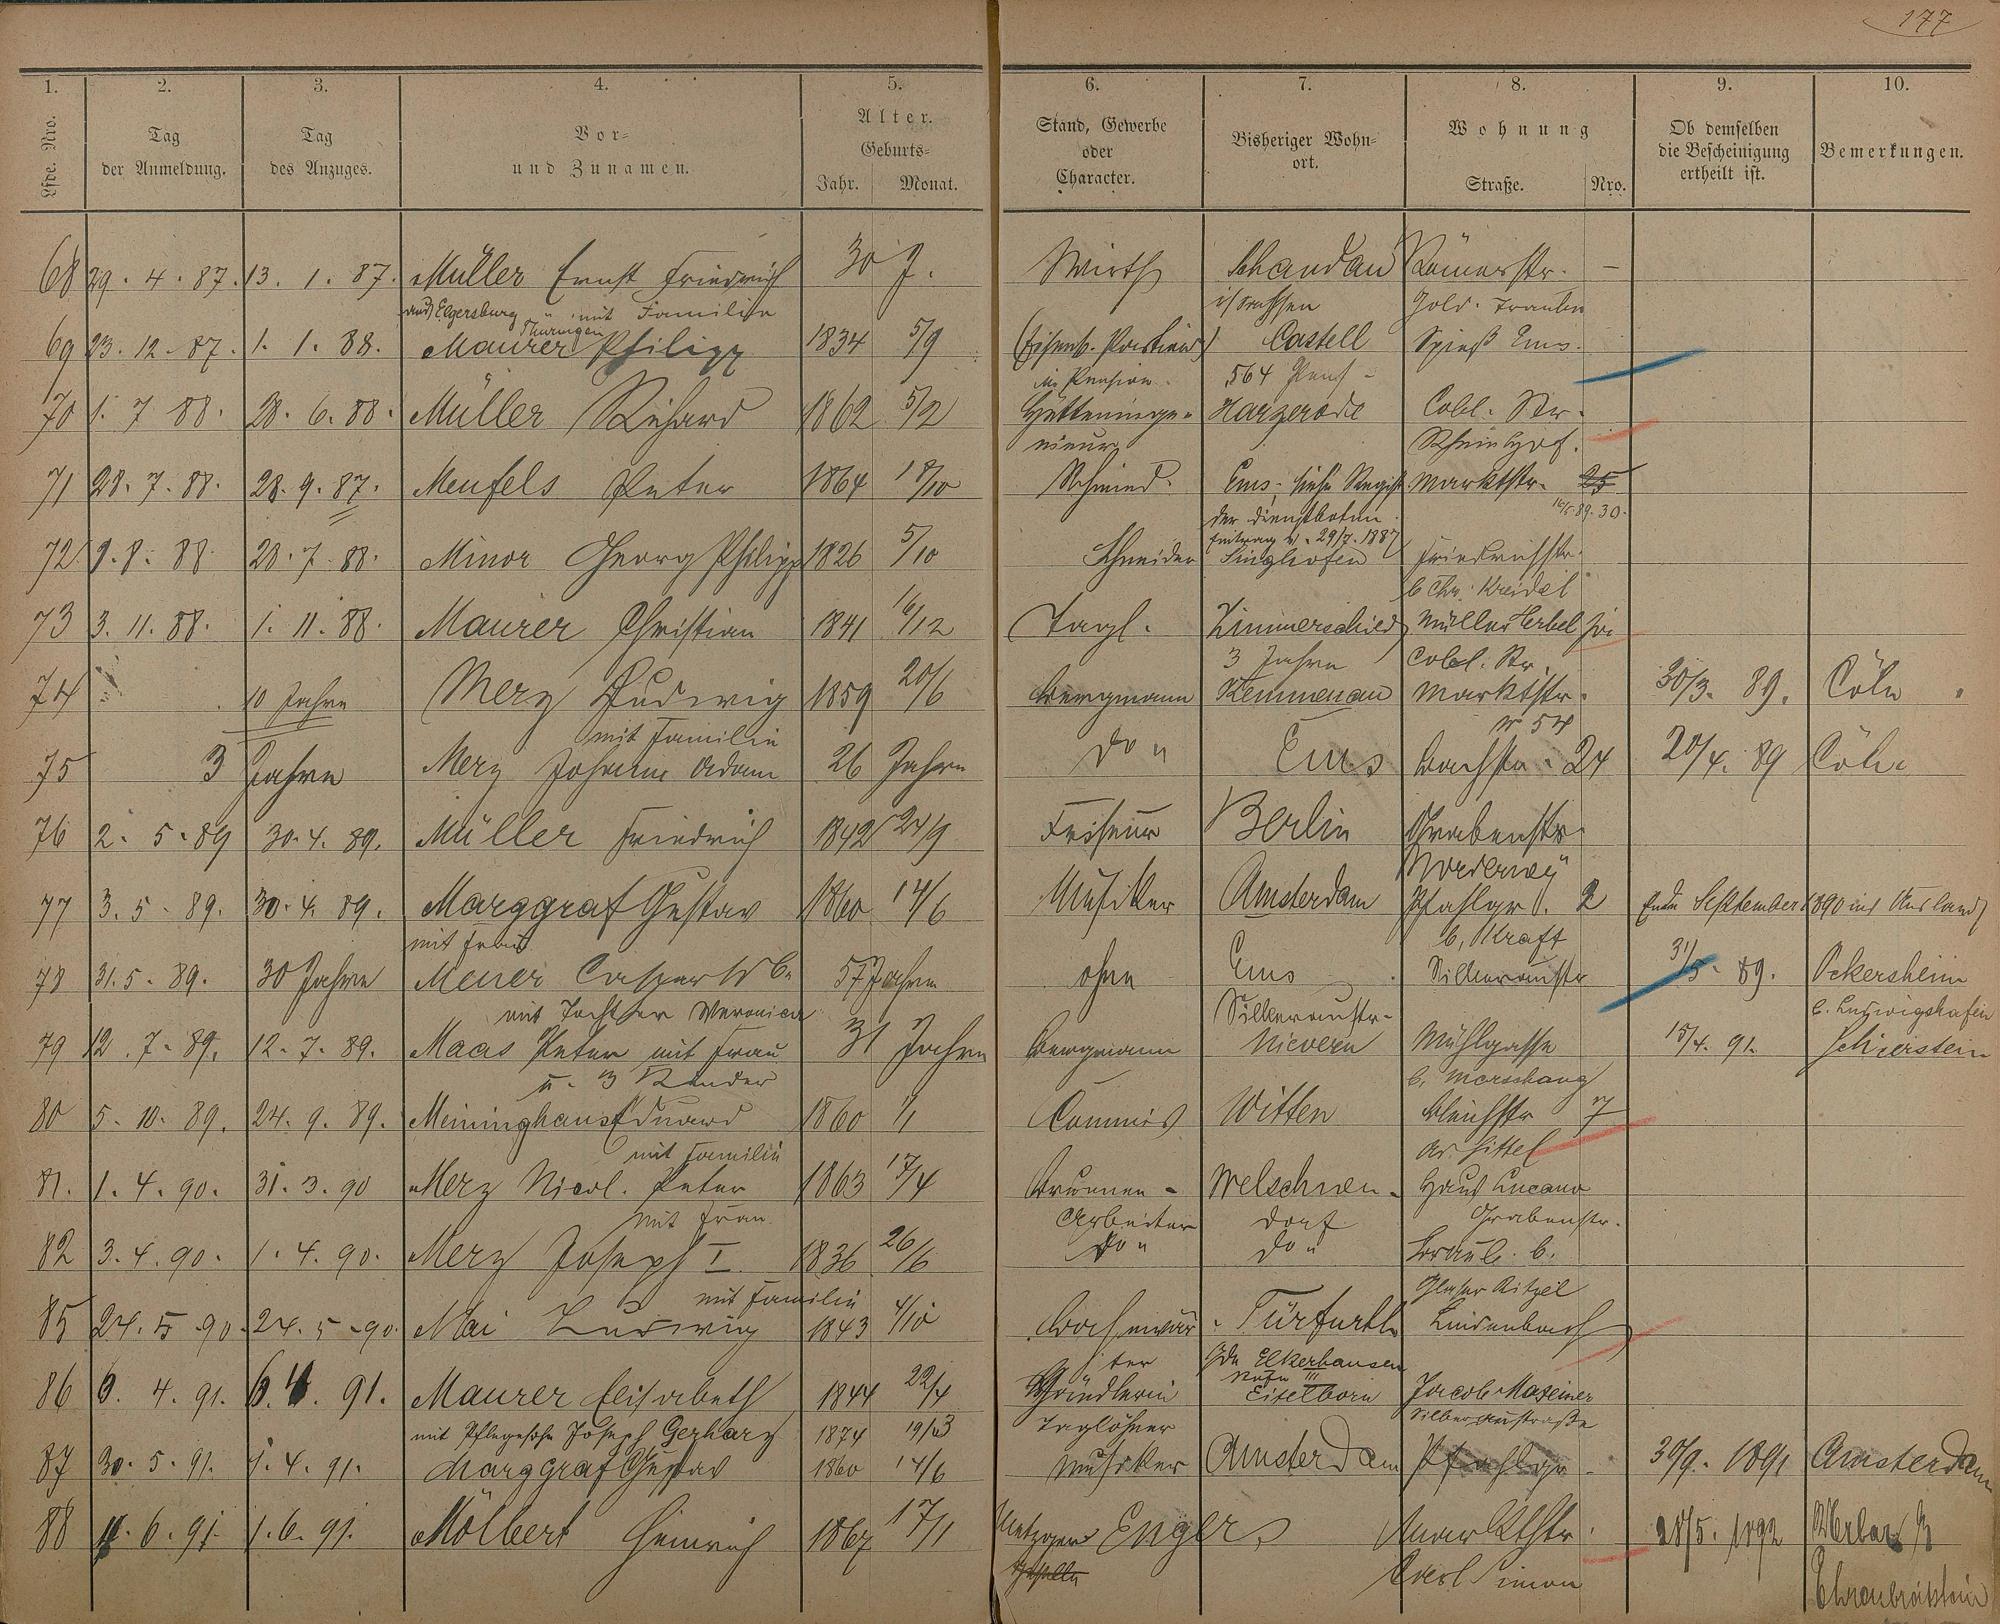 177
1. 2. 3. 4. 5. 6. 7. 8. 9. 10.
Lfde. Nro.
Tag der Anmeldung.
Tag des Anzuges.
Vor- und Zunamen.
Alter. Geburts- Jahr. Monat.
Stand, Gewerbe oder Character.
Bisheriger Wohnort.
Wohnung Straße. Nro.
Ob demselben die Bescheinigung ertheilt ist.
Bemerkungen.
68 29. 4. 87. 13. 1. 87. Müller Ernst Friedrich 30 J. Wirth Schandau Römerstr. –
aus Elgersburg Thüringen mit Familie i/Sachsen Gold. Trauben
69 23. 12. 87. 1. 1. 88. Maurer Philipp 1834 5/9 Castell Spieß Ems.
in Pension. 564
70 1. 7 88. 28. 6. 88. Müller Richard 1862 5/2 Hüttenинge- Harzerode Cobl. Str.
nieur Rheinhof.
71 28. 7. 88. 28. 9. 87. Meufels Peter 1864 18/10 Schmied. Ems, siehe Regist Marktstr. 25
der Dienstboten 16/5. 89. 30.
Eintrag v. 29/7. 1887
72 9. 8. 88. 28. 7. 88. Minor Georg Philipp 1826 5/10 Schneider Singhofen Friedrichstr.
b Chr. Kreidel
73 3. 11. 88. 1. 11. 88. Maurer Christian 1841 16/12 Tagl. Zimmerschied Müller Herbel
3 Jahre Cobl. Str.
74 10 Jahre Merz Ludwig 1859 20/6 Bergmann Kemmenau Marktstr. 30/3. 89. Cöln
mit Familie 54
75 3 Jahre Merz Johann Adam 26 Jahre do " Ems Bachstr. 24 20/4. 89 Cöln
76 2. 5. 89 30. 4. 89. Müller Friedrich 1842 24/9 Friseur Berlin Grabenstr.
"Norderney"
77 3. 5. 89. 30. 4. 89. Marggraf Gustav 1860 14/6 Musiker Amsterdam Pfahlgr. 2 Ende September 1890 ins Ausland
mit Frau b. Kraft
78 31. 5. 89. 30 Jahre Meuer Caspar Wb. 57 Jahre ohne Ems Silberaustr 31/5. 89. Ockersheim
mit Tochter Veronica Silberaustr. b. Ludwigshafen
79 12. 7. 89. 12. 7. 89. Maas Peter mit Frau 31 Jahre Bergmann Nievern Mühlgasse 15/4. 91. Schierstein
u. 3 Kinder b. Morschang
80 5. 10. 89. 24. 9. 89. Meininghaus Eduard 1860 1/1 Commis Witten Bleichstr 7
mit Familie
81. 1. 4. 90. 31. 3. 90 Merz Nicol. Peter 1863 17/4 Brunnen- Welschnen- Haus Lucano
mit Frau. Arbeiter dorf Grabenstr.
82 3. 4. 90. 1. 4. 90. Merz Joseph I. 1836 26/6 do " do " Braub. b.
mit Familie Glaser Ritzel
85 24. 5 90. 24. 5. 90. Mai Ludwig 1843 4/10 Bahnwär- Fürfurth Lindenbach
ter Gde Elkerhausen
86 6. 4. 91. 6. 4. 91. Maurer Elisabeth 1844 22/4 Händlerin Eitelborn Jacob Maxeiner
mit Pflegesohn Joseph Gerharz 1874 19/3 Taglöhner Silberaustraße
87 30. 5. 91. 1. 4. 91. Marggraf Gustav 1860 14/6 Musiker Amsterdam Pfahlgr. 30/9. 1891 Amsterdam
88 4. 6. 91. 1. 6. 91. Mölbert Heinrich 1867 17/1 Metzger Engers Marktstr. 28/5. 1892
Carl Simon Ehrenbreitstein